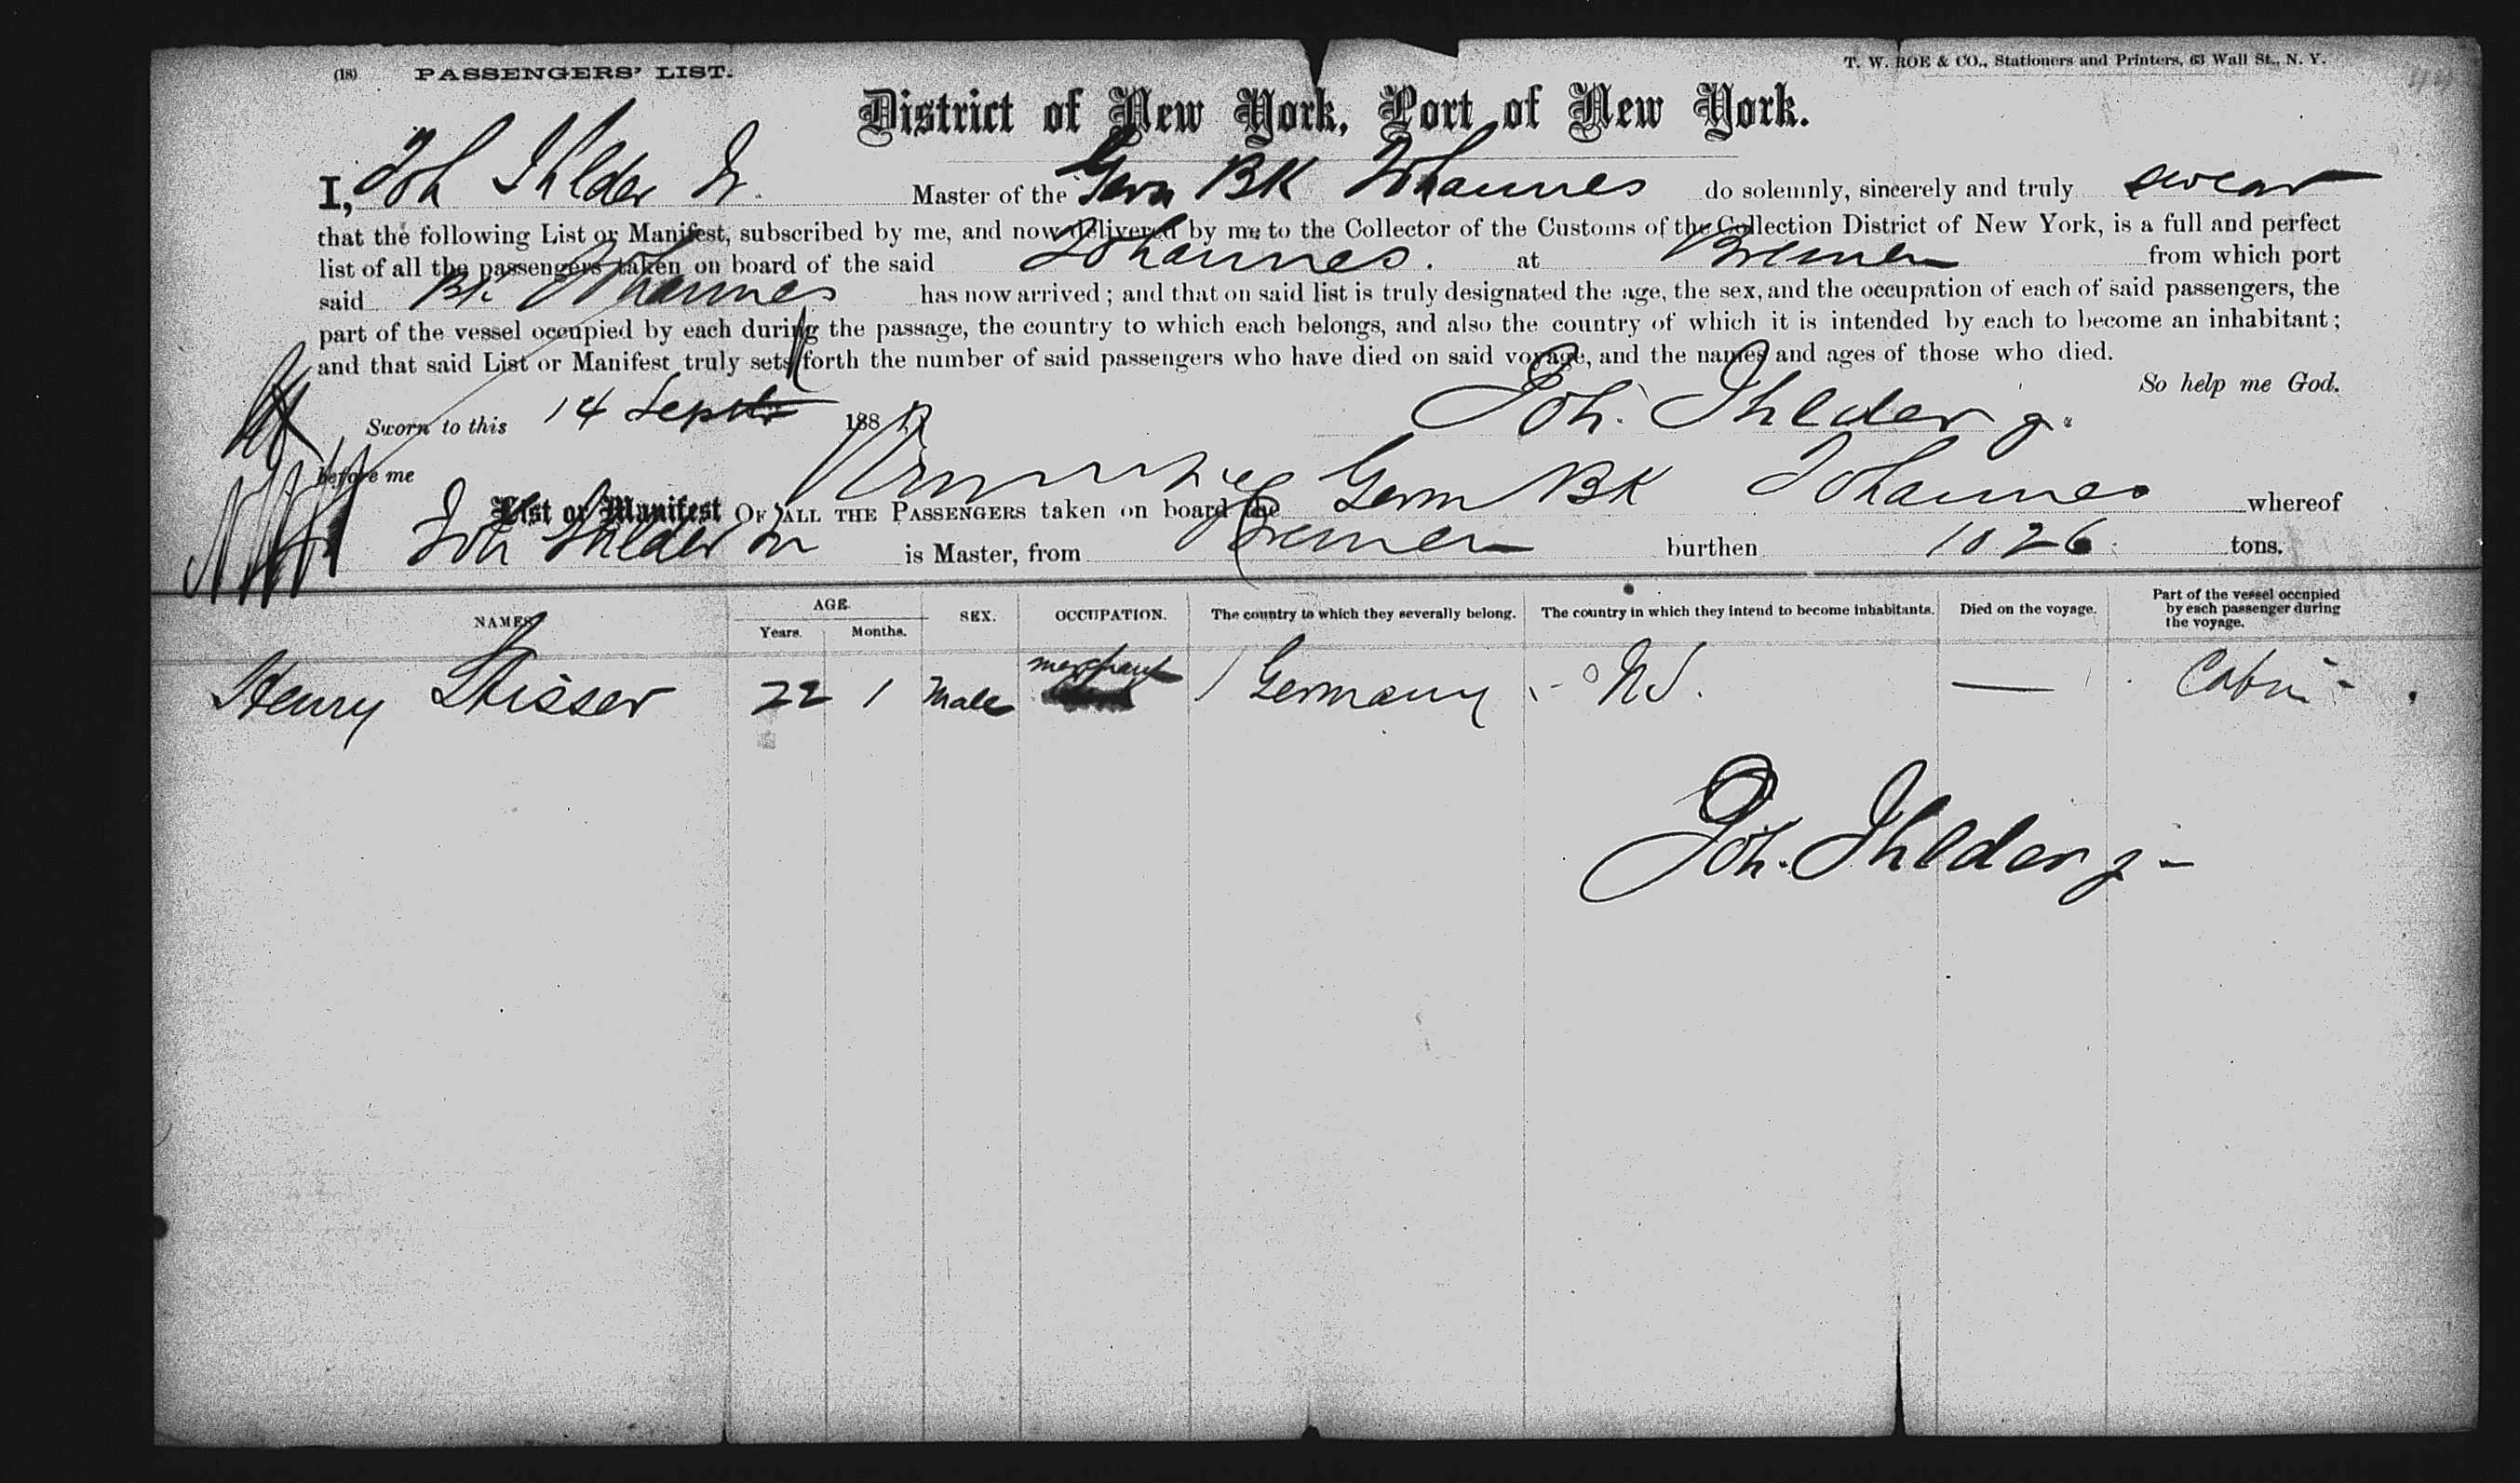 (18) PASSENGERS' LIST.
T. W. ROE & CO., Stationers and Printers, 63 Wall St., N. Y.
District of New York, Port of New York.
I, Joh Ihlder Jr. Master of the Germ BK Johannes do solemnly, sincerely and truly swear
that the following List or Manifest, subscribed by me, and now delivered by me to the Collector of the Customs of the Collection District of New York, is a full and perfect
list of all the passengers taken on board of the said Johannes. at Bremen from which port
said Bk Johannes has now arrived; and that on said list is truly designated the age, the sex, and the occupation of each of said passengers, the
part of the vessel occupied by each during the passage, the country to which each belongs, and also the country of which it is intended by each to become an inhabitant;
and that said List or Manifest truly sets forth the number of said passengers who have died on said voyage, and the names and ages of those who died.
So help me God.
Sworn to this 14 Septbr 188
Joh. Ihlder jr.
before me
List or Manifest OF ALL THE PASSENGERS taken on board the Germ BK Johannes whereof
Joh Ihlder Jr is Master, from Bremen burthen 1026 tons.
NAMES AGE. Years. Months. SEX. OCCUPATION. The country to which they severally belong. The country in which they intend to become inhabitants. Died on the voyage. Part of the vessel occupied by each passenger during the voyage.
Henry 22 1 Male merchant Germany — Cabin
Joh. Ihlder jr